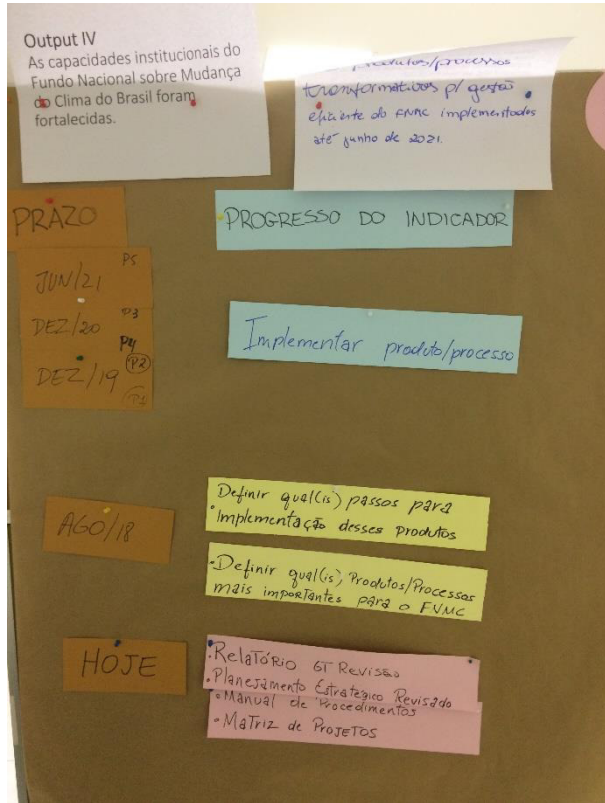 Output IV
As capacidades institucionais do
Fundo Nacional sobre Mudança
do Clima do Brasil foram
fortalecidas.
produtos/processos
transformativos p/ gestão
eficiente do FNMC implementados
até junho de 2021.
PRAZO
PROGRESSO DO INDICADOR
JUN/21 P5
DEZ/20 P3
P4
DEZ/19 P2
P1
Implementar produto/processo
AGO/18
Definir qual(is) passos para
implementação desses produtos
•Definir qual(is), Produtos/Processos
mais importantes para o FVMC
HOJE
•Relatório GT Revisão
•Planejamento Estratégico Revisado
•Manual de Procedimentos
•Matriz de Projetos